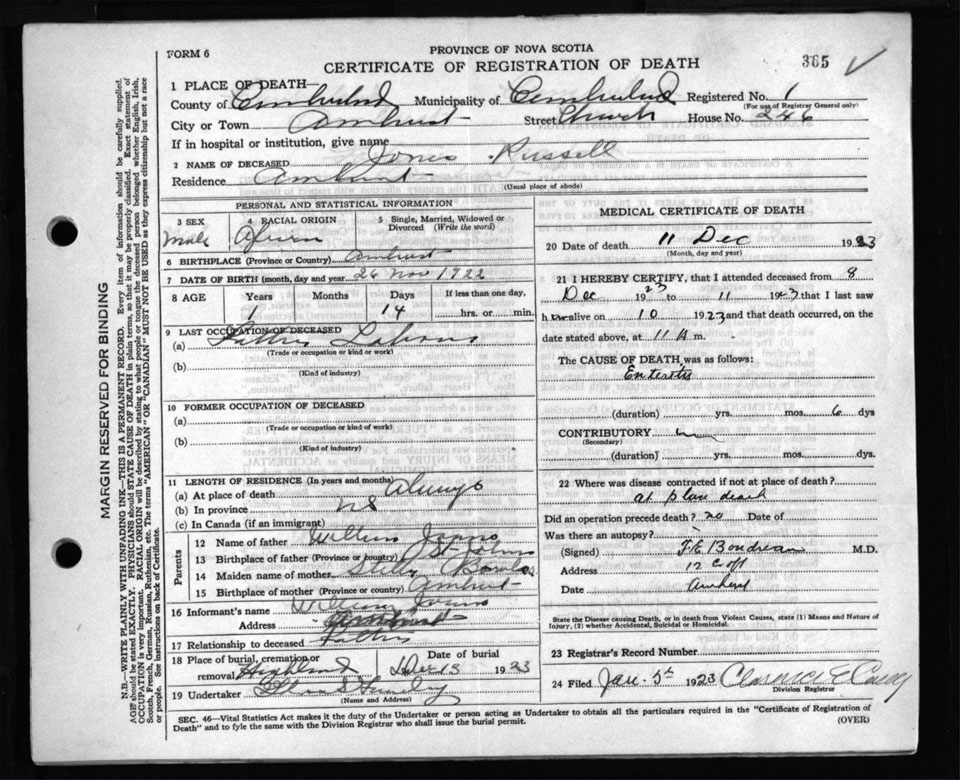 PROVINCE OF NOVA SCOTIA
FORM 6 CERTIFICATE OF REGISTRATION OF DEATH 365
1 PLACE OF DEATH
County of Cumberland Municipality of Cumberland Registered No. 1
(For use of Registrar General only)
City or Town Amherst Street Church House No. 246
If in hospital or institution, give name
2 NAME OF DECEASED Jones Russell
Residence Amherst
(Usual place of abode)
PERSONAL AND STATISTICAL INFORMATION
3 SEX Male 4 RACIAL ORIGIN 5 Single, Married, Widowed or Divorced (Write the word)
6 BIRTHPLACE (Province or Country) Amherst
7 DATE OF BIRTH (month, day and year) 26 Nov 1922
8 AGE Years Months Days If less than one day,
1 14 hrs. or min.
9 LAST OCCUPATION OF DECEASED
(a) Fathers
(Trade or occupation or kind or work)
(b)
(Kind of industry)
10 FORMER OCCUPATION OF DECEASED
(a)
(Trade or occupation or kind or work)
(b)
(Kind of industry)
11 LENGTH OF RESIDENCE (In years and months)
(a) At place of death always
(b) In province NS
(c) In Canada (if an immigrant)
Parents
12 Name of father William Jones
13 Birthplace of father (Province or country) St Johns
14 Maiden name of mother Stella
15 Birthplace of mother (Province or country) Amherst
16 Informant's name William Jones
Address Amherst
17 Relationship to deceased Father
18 Place of burial, cremation or removal Highland Date of burial Dec 13 1923
19 Undertaker
(Name and Address)
MEDICAL CERTIFICATE OF DEATH
20 Date of death 11 Dec 1923
(Month, day and year)
21 I HEREBY CERTIFY, that I attended deceased from 8
Dec 1923 to 11 1923 that I last saw
h alive on 10 1923 and that death occurred, on
date stated above, at 11 A m.
The CAUSE OF DEATH, was as follows:
Enteritis
(duration) yrs. mos. 6 dys
CONTRIBUTORY
(Secondary)
(duration) yrs. mos. dys.
22 Where was disease contracted if not at place of death?
at place death
Did an operation precede death? no Date of
Was there an autopsy?
(Signed) F.E. Boudreau M.D.
Address
Date Amherst
State the Disease causing Death, or in death from Violent Causes, state (1) Means and Nature of
Injury, (2) whether Accidental, Suicidal or Homicidal.
23 Registrar's Record Number
24 Filed Jan. 5th 1923 Clarence E
Division Registrar
SEC. 46—Vital Statistics Act makes it the duty of the Undertaker or person acting as Undertaker to obtain all the particulars required in the "Certificate of Registration of
Death" and to fyle the same with the Division Registrar who shall issue the burial permit. (OVER)
MARGIN RESERVED FOR BINDING
N.B.—WRITE PLAINLY WITH UNFADING INK—THIS IS A PERMANENT RECORD. Every item of information should be carefully supplied.
AGE should be stated EXACTLY. PHYSICIANS should STATE CAUSE OF DEATH in plain terms, so that it may be properly classified. Exact statement of
OCCUPATION is very important. RACIAL ORIGIN will be described by stating to what people or tongue the deceased person belonged whether English, Irish,
Scotch, French, German, Russian, Ruthenian, etc. The terms "AMERICAN" OR "CANADIAN" MUST NOT BE USED as they express citizenship but not a race
or people. See instructions on back of Certificate.